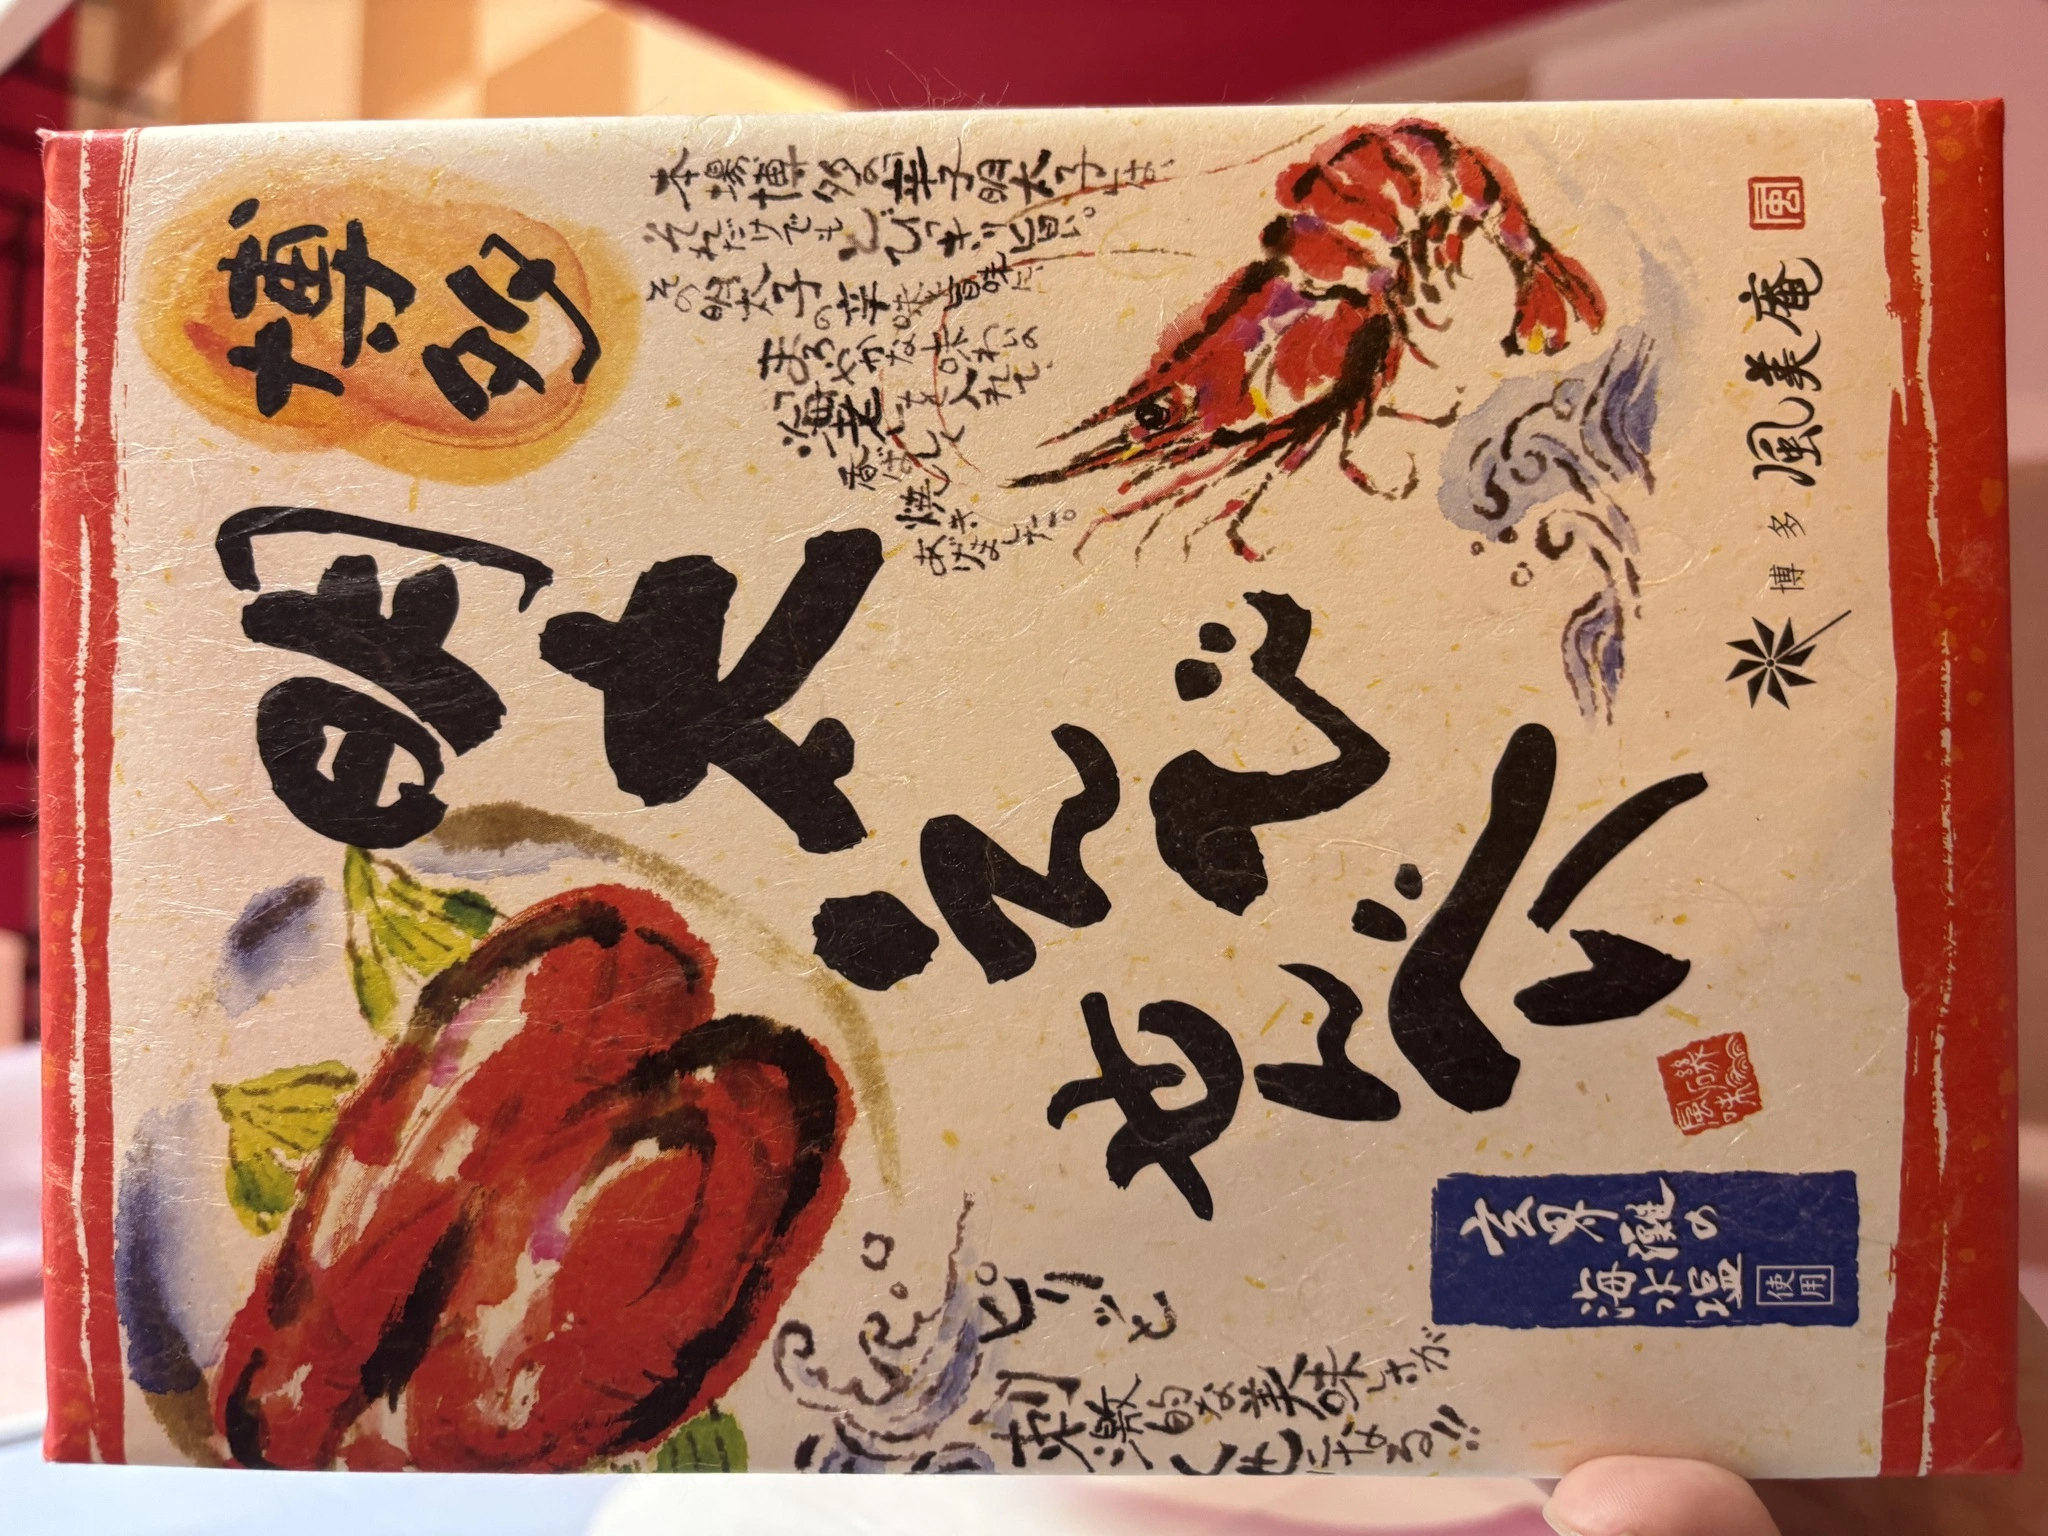 博多
明太
えび
せんべい
本場博多の辛子明太子は、
それだけでもとびっキリ旨い。
その明太子の辛味と旨味に、
まろやかな味わいの
「海老」を入れて
香ばしく
焼き
あげました。
ピリッと
刺激的な美味しさが
くせになる!!
玄界灘の
海水塩
使用
博多 風美庵
風